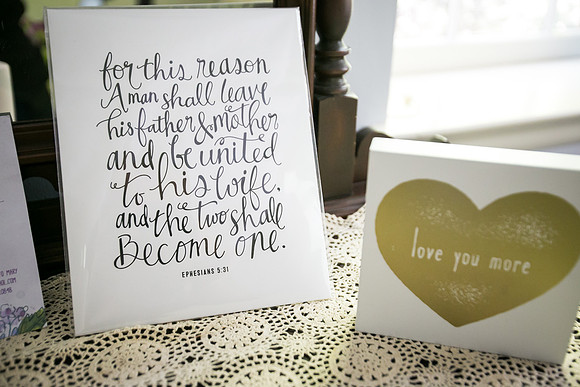 for this reason
A man shall leave
his father & mother
and be united
to his wife.
and the two shall
Become one.
EPHESIANS 5:31
love you more